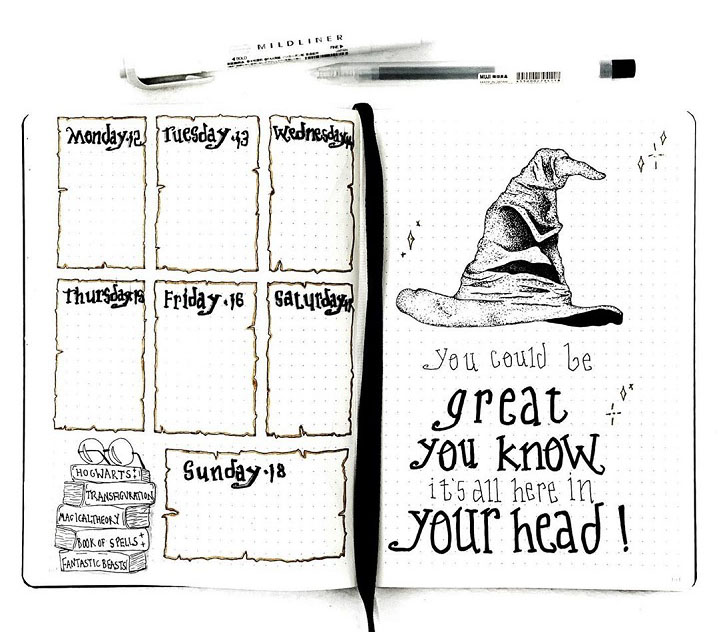 MILDLINER
MUJI
Monday.12
Tuesday.13
Wednesday
Thursday.15
Friday.16
Saturday
Sunday.18
HOGWARTS
TRANSFIGURATION
MAGICAL THEORY
BOOK OF SPELLS
FANTASTIC BEASTS
you could be
great
you know
it's all here in
your head!